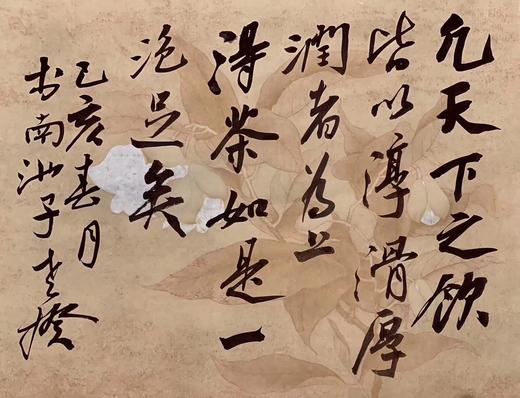 凡天下之飲
皆以淳滑厚
潤者為上
得茶如是一
泡足矣
己亥春月
书南池子